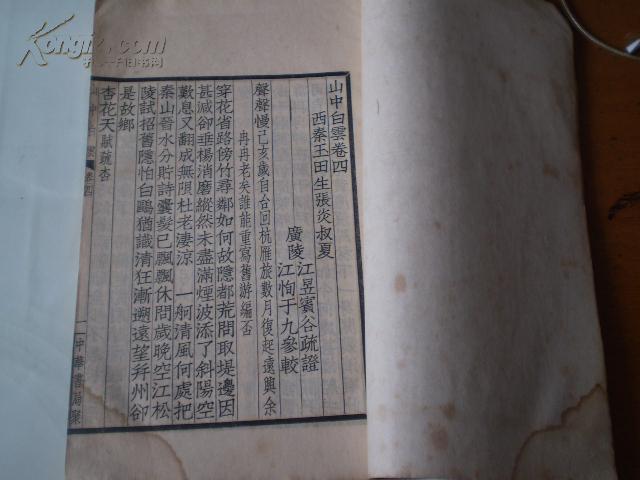 山中白雲卷四
西秦玉田生張炎叔夏
廣陵江昱賓谷疏證
江恂于九參較
聲聲慢己亥歲自台回杭雁旅數月復起遠興余
冉冉老矣誰能重寫舊游編否
穿花省路傍竹尋鄰如何故隱都荒問取堤邊因
甚減卻垂楊消磨縱然未盡滿煙波添了斜陽空
歎息又翻成無限杜老淒涼 一舸清風何處把
秦山晉水分貯詩囊髮已飄飄休問歲晚空江松
陵試招舊隱怕白鷗猶識清狂漸遡遠望并州卻
是故鄉
杏花天賦疏杏
山中白雲 卷四
一中華書局聚
Kongfz.com